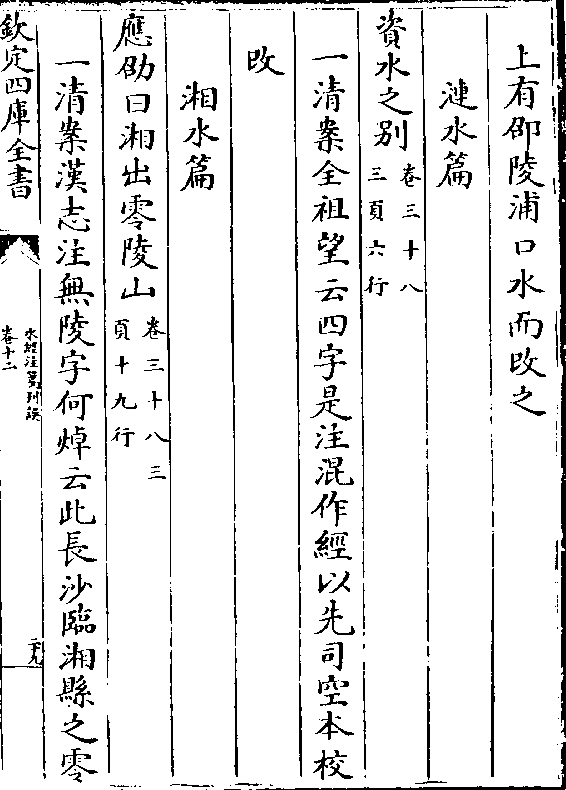 上有邵陵浦口水而改之
漣水篇
資水之别卷三十八
三頁六行
一清案全祖望云四字是注混作經以先司空本校
改
湘水篇
應劭曰湘出零陵山卷三十八三
頁十九行
一清案漢志注無陵字何焯云此長沙臨湘縣之零
欽定四庫全書
水經注箋刊誤
卷十二
二九